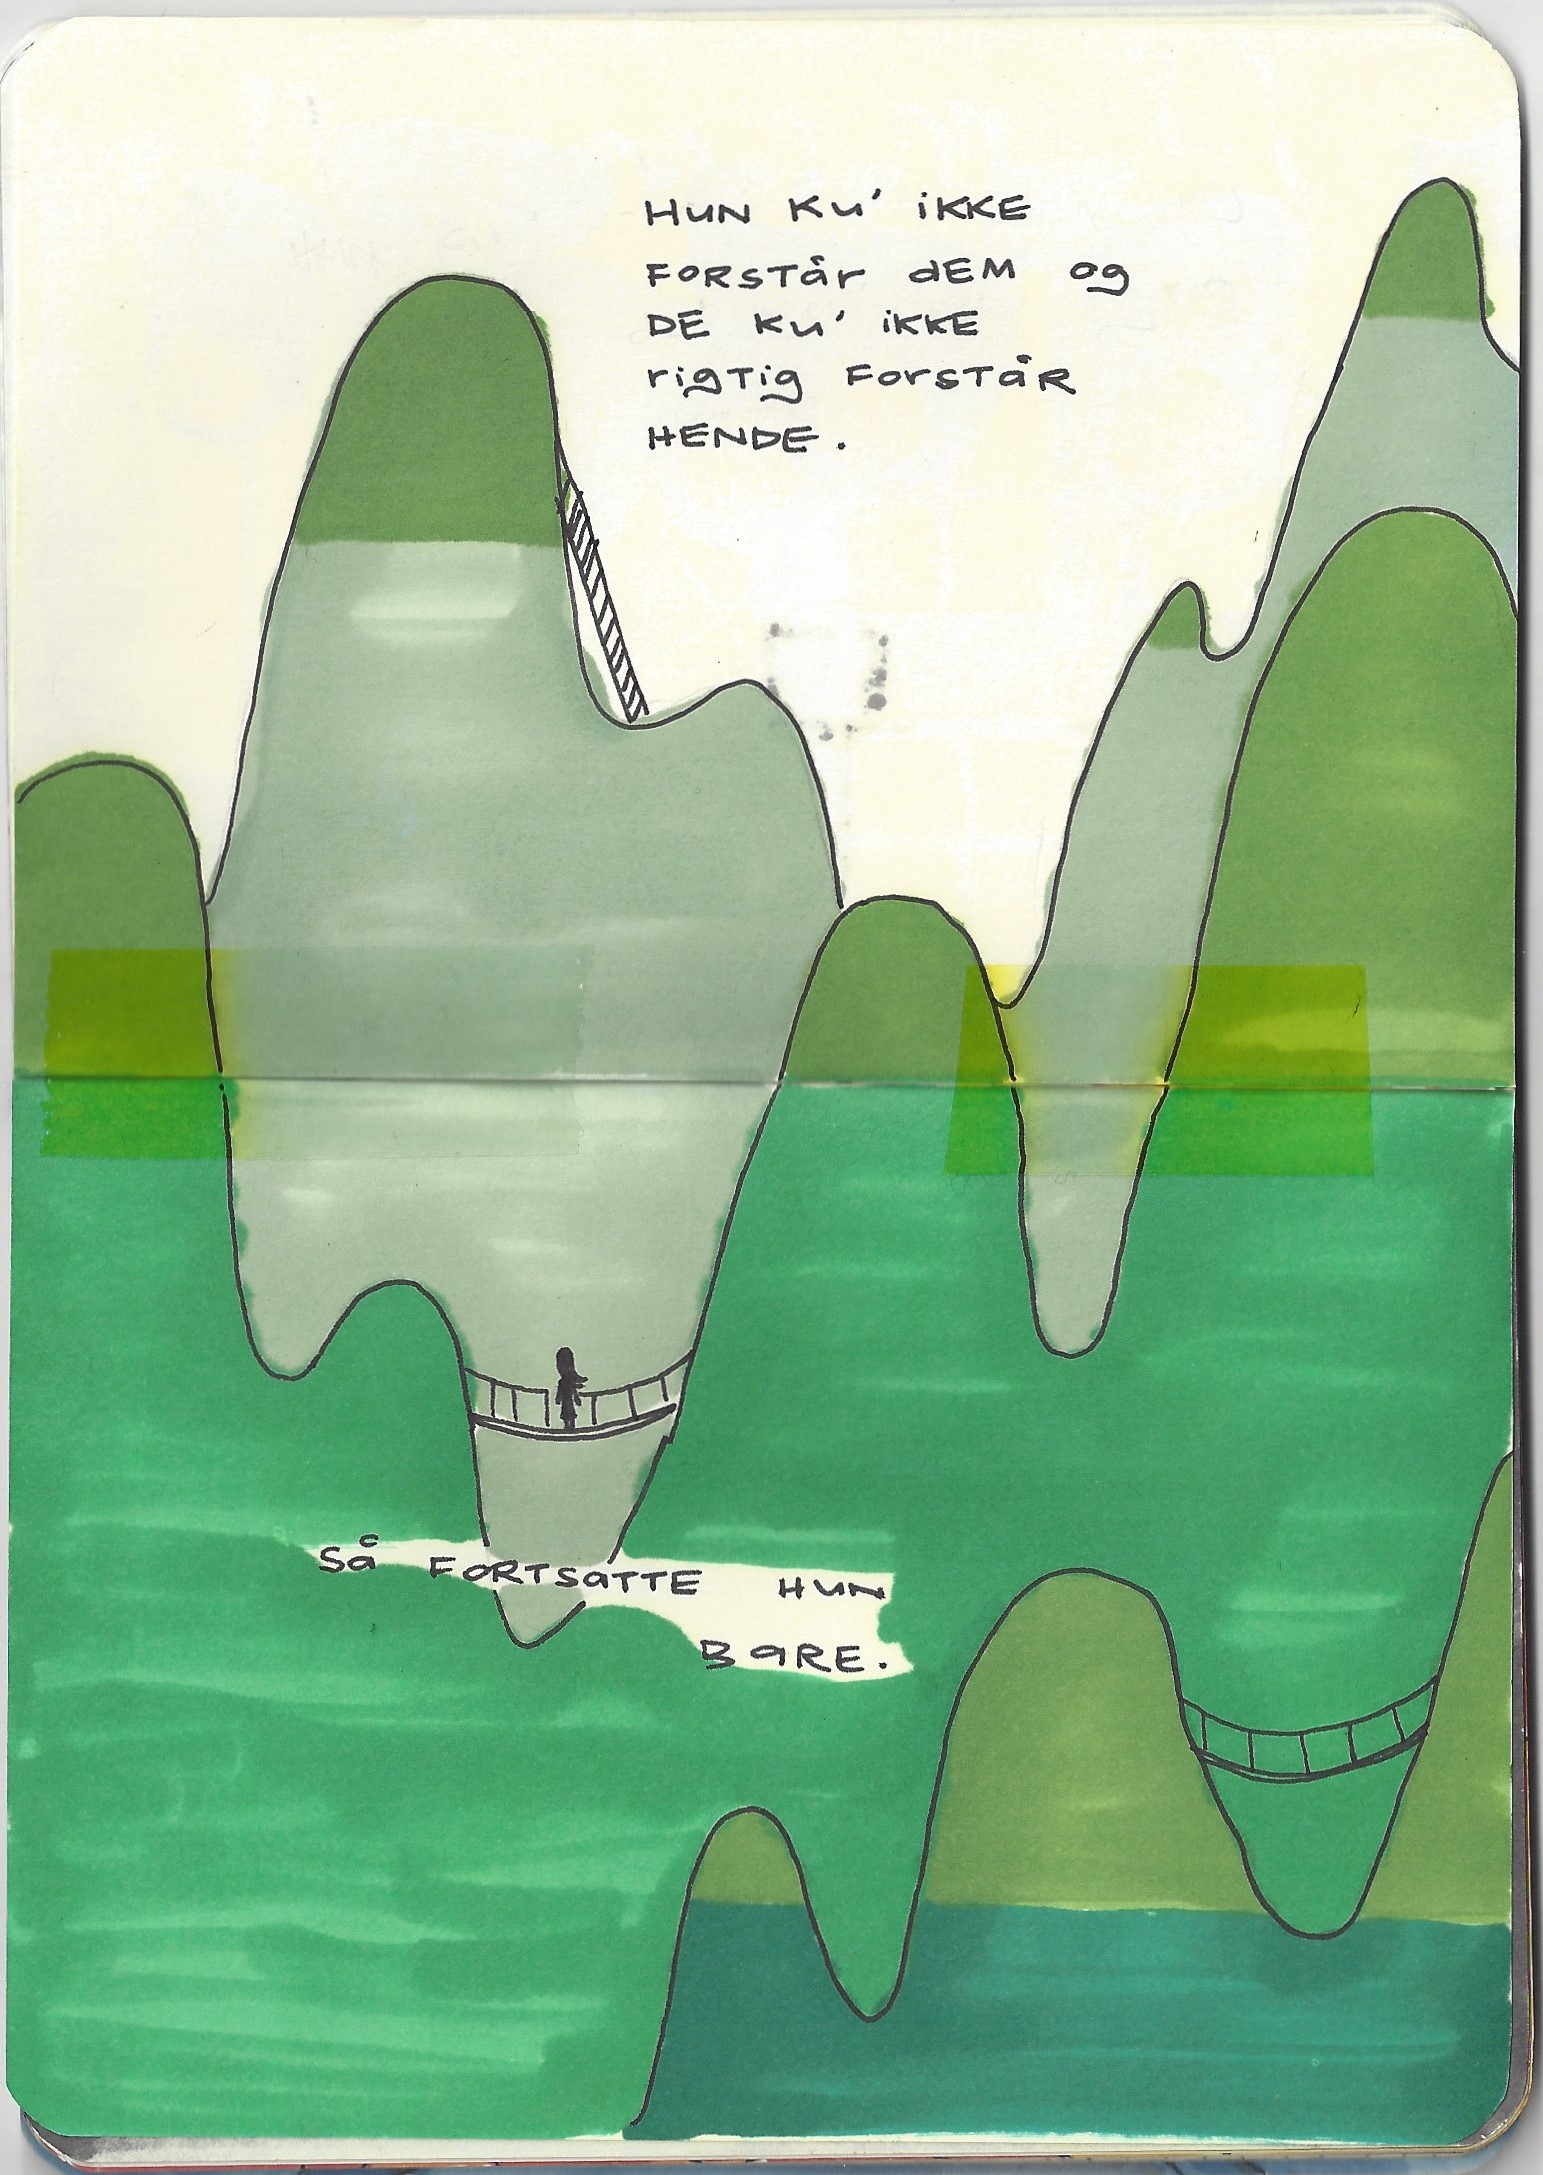 HUN KU' iKKE
FORSTår dEM og
DE KU' iKKE
rigTig ForsTåR
HENDE.
Så FORTSATTE HUN
BARE.